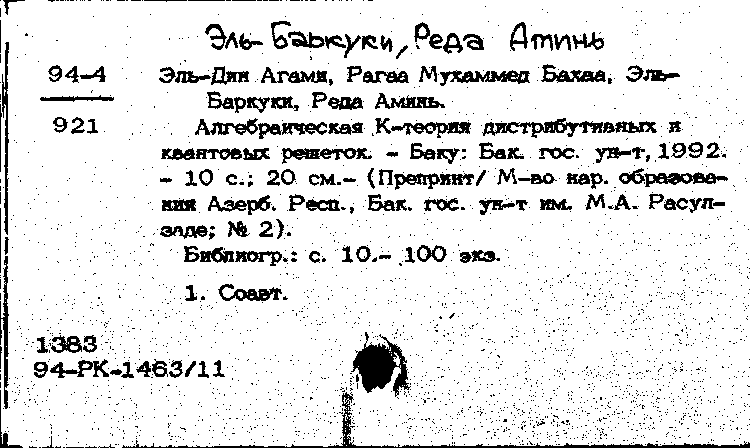 Эль-Баркуки, Реда Аминь
94-4 Эль-Дин Агами, Рагаа Мухаммед Бахаа, Эль-
Баркуки, Реда Аминь.
921 Алгебраическая К-теория дистрибутивных и
квантовых решеток. - Баку: Бак. гос. ун-т, 1992.
- 10 с.; 20 см.- (Препринт/ М-во нар. образова-
ния Азерб. Респ., Бак. гос. ун-т им. М.А. Расул-
заде; № 2).
Библиогр.: с. 10.- 100 экз.
1. Соавт.
1383
94-РК-1463/11